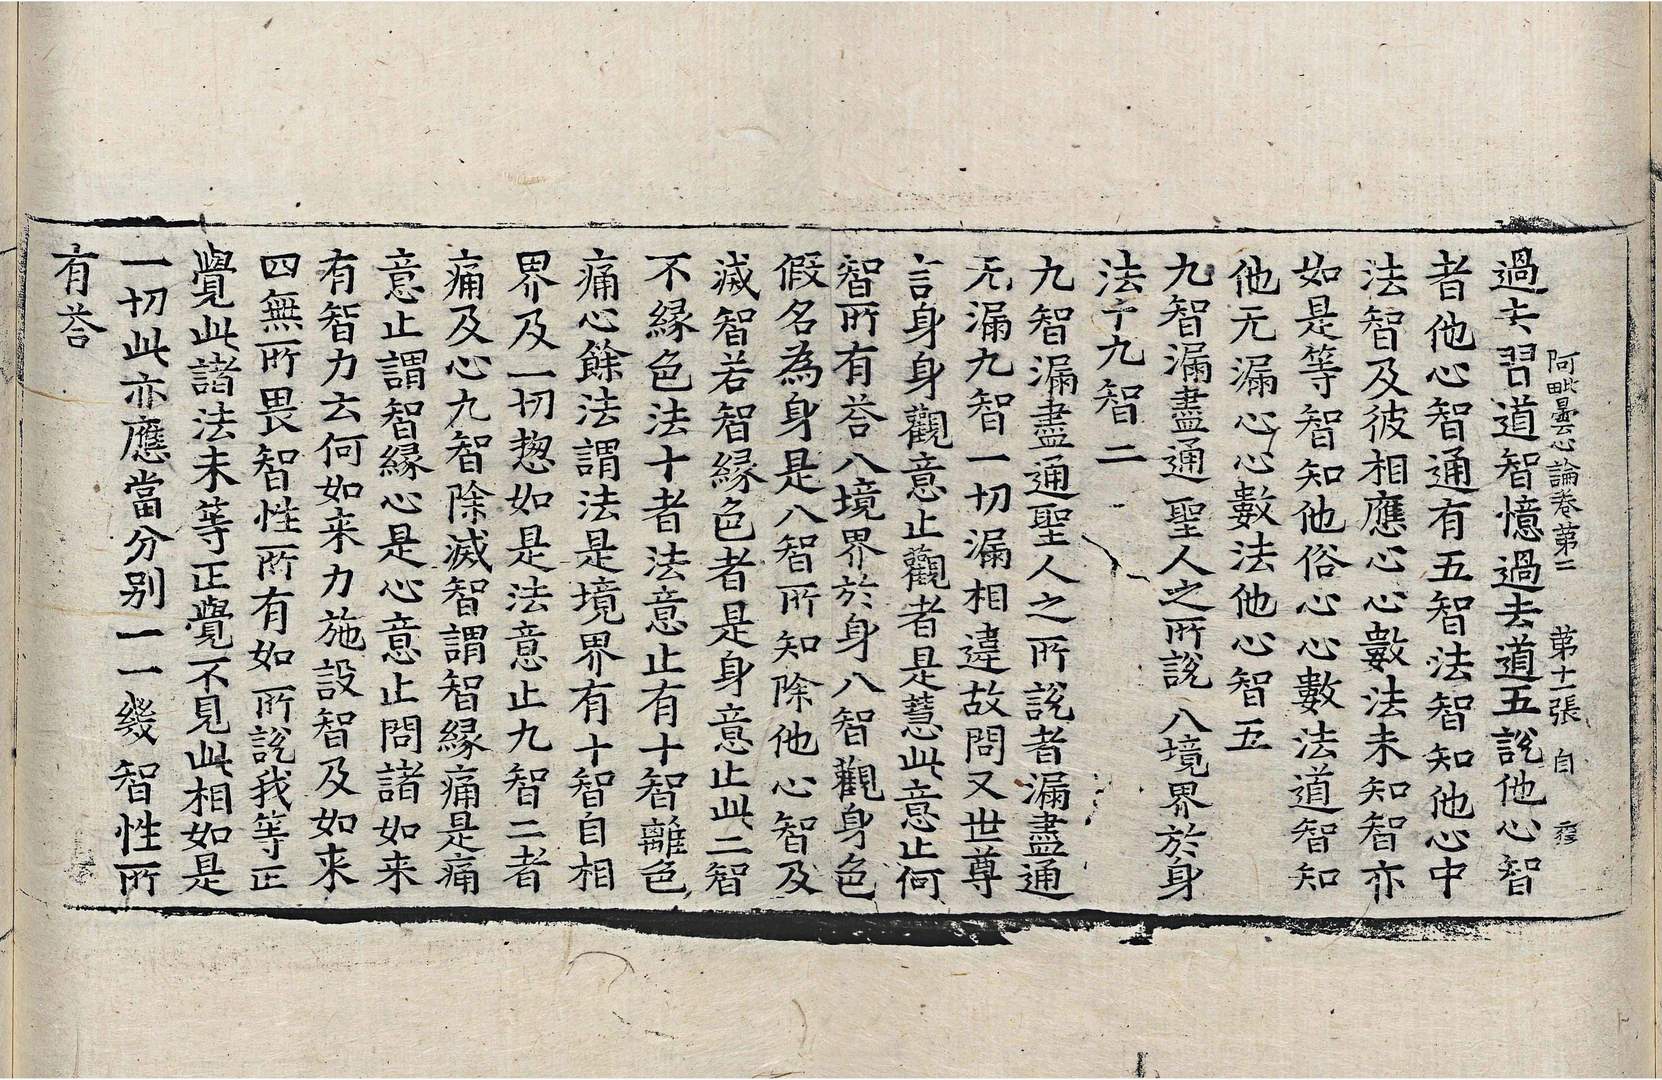 阿毗曇心論卷第二 第十一張 自
過去習道智憶過去道五說他心智
者他心智通有五智法智知他心中
法智及彼相應心心數法未知智亦
如是等智知他俗心心數法道智知
他无漏心心數法他心智五
九智漏盡通 聖人之所說 八境界於身
法十九智二
九智漏盡通聖人之所說者漏盡通
无漏九智一切漏相違故問又世尊
言身身觀意止觀者是慧此意止何
智所有荅八境界於身八智觀身色
假名為身是八智所知除他心智及
滅智若智緣色者是身意止此二智
不緣色法十者法意止有十智離色
痛心餘法謂法是境界有十智自相
界及一切惣如是法意止九智二者
痛及心九智除滅智謂智緣痛是痛
意止謂智緣心是心意止問諸如来
有智力云何如来力施設智及如来
四無所畏智性所有如所說我等正
覺此諸法未等正覺不見此相如是
一切此亦應當分别一一幾智性所
有荅